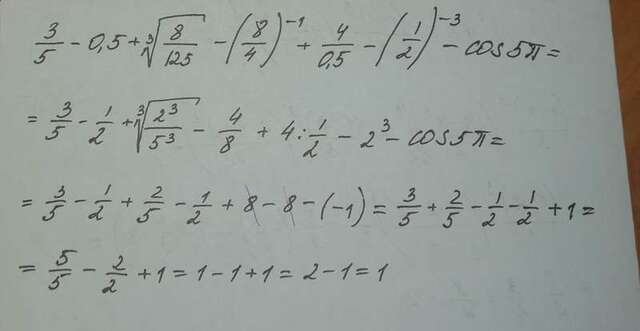 3/5 - 0,5 + ∛(8/125) - (8/4)^(-1) + 4/0,5 - (1/2)^(-3) - cos 5π =
= 3/5 - 1/2 + ∛(2³/5³) - 4/8 + 4 : 1/2 - 2³ - cos 5π =
= 3/5 - 1/2 + 2/5 - 1/2 + 8 - 8 - (-1) = 3/5 + 2/5 - 1/2 - 1/2 + 1 =
= 5/5 - 2/2 + 1 = 1 - 1 + 1 = 2 - 1 = 1